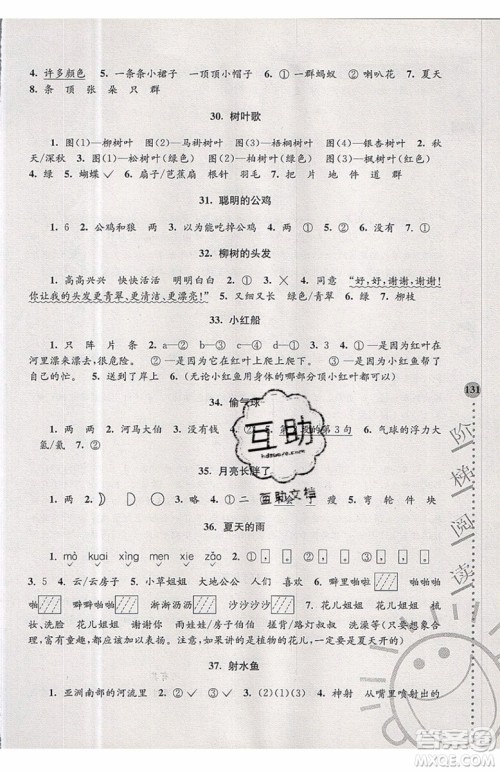 4. 许多颜色 5. 一条条小裙子 一顶顶小帽子 6. ① 一群蚂蚁 ② 喇叭花 7. 夏天
8. 条 顶 张 朵 只 群
30. 树叶歌
1. 图(1)—柳树叶 图(2)—马褂树叶 图(3)—梧桐树叶 图(4)—银杏树叶 2. 秋
天/深秋 3. 图(1)—柳树叶(绿色) 图(2)—松树叶(绿色) 图(3)—枫树叶(红色)
4. 绿 5. 蝴蝶 ✓ 6. 扇子/芭蕉扇 根针 羽毛 7. 片 地 件 道 群
31. 聪明的公鸡
1. 6 2. 公鸡和狼 两 3. 为如何能吃掉公鸡 4. 两 ① 5. ② 6. 没有 7. ①
32. 柳树的头发
1. 高高兴兴 快快活活 明明白白 2. ② 3. ① ✕ 4. 同意 “好,好,谢谢,谢谢!
你让我的头发更青翠、更清洁、更漂亮!” 5. 又细又长 绿色/青翠 6. ① 7. 柳枝
33. 小红船
1. 只 阵 片 条 2. a—② b—① c—② d—① 3. ①②④ 4. 红叶在
河里漂来漂去,很危险。 5. ①—是因为它在红叶上爬来爬去 ②—是因为它在红叶
上蹦来蹦去 6. ✓ (无论小红鱼用身体的哪部分顶小红叶都对) 7. 大树 岸上
34. 偷气球
1. 两 两 2. 河马大伯 3. 没有钱 4. ② 5. 第
6. ① 气球的浮力大
氢(氦)气
35. 月亮长胖了
1. 两 2. 3. 略 4. ① 二 ② 5. ② 6. 弯 轮 件 块
36. 夏天的雨
1. mò kuai xíng bèn xie zǎo 2. ① , 。 ② , 。 ③ ! , 。
3. 5 4. 云/云房子 5. 小草姐姐 大地公公 6. 喜欢! 真香! 7. 噼里啪啦
啪 啪啪 淅淅沥沥 沙沙沙沙 8. 花儿姐姐 花儿姐姐 梳
妆、洗脸 花儿姐姐 雨娃娃/雨姑娘 搓背/路灯叔叔 关灯 花儿姐姐 正在
打电话 (以上均可,注意填写讲述的是植物的花儿,是夏天开的)
37. 射水鱼
1. 亚洲南部的河流里 2. ② ✓ ① ✓ 3. (2)(1)(3) 4. 神射 从嘴里喷射出的
131
阶梯阅读
互助
互助文档
答案圈
MXQE.COM